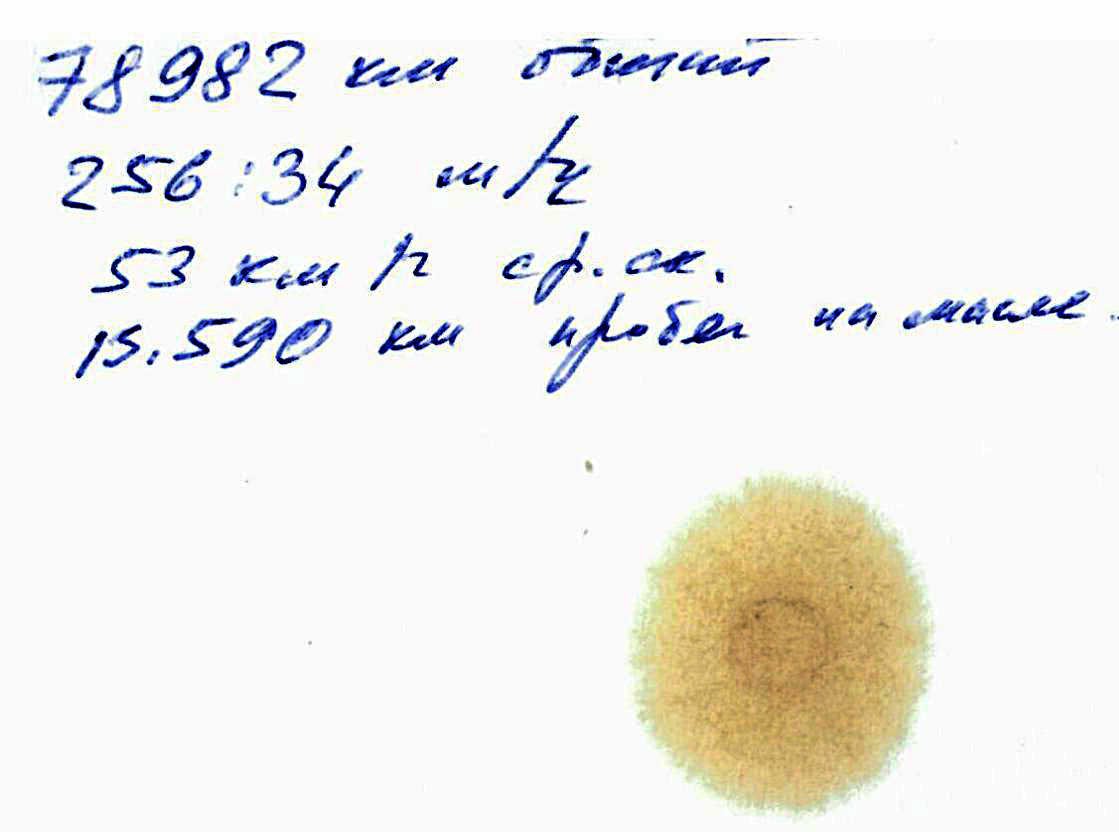 78982 км общий
256:34 м/ч
53 км/г ср. ск.
15.590 км пробег на масле.